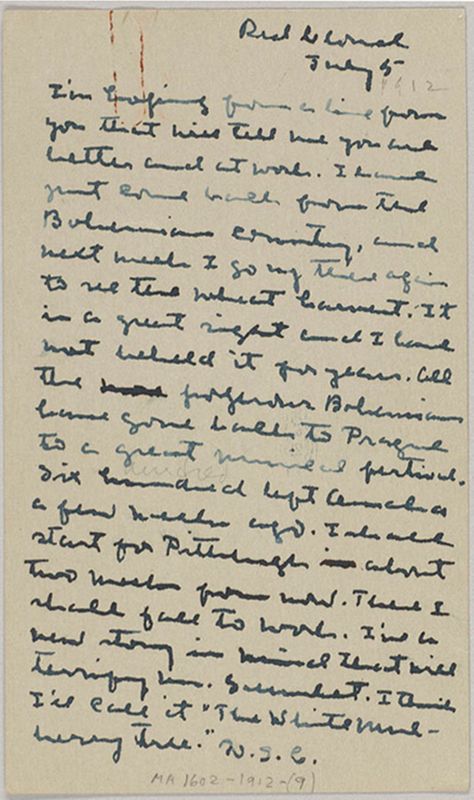 Red Cloud
July 5
1912
I'm hoping for a line from
you that will tell me you are
better and at work. I have
just come back from the
Bohemian country, and
next week I go up there again
to see the wheat harvest. It
is a great sight and I have
not beheld it for years. All
the Bohemians
have gone back to Prague
to a great musical festival.
hundred
Six hundred left Omaha
a few weeks ago. I shall
start for Pittsburgh in about
two weeks from now. There I
shall fall to work. I've a
new story in mind that will
terrify Mr. Greenslet. I think
I'll call it "The White Mul-
berry Tree." W.S.C.
MA 1602-1912-(9)